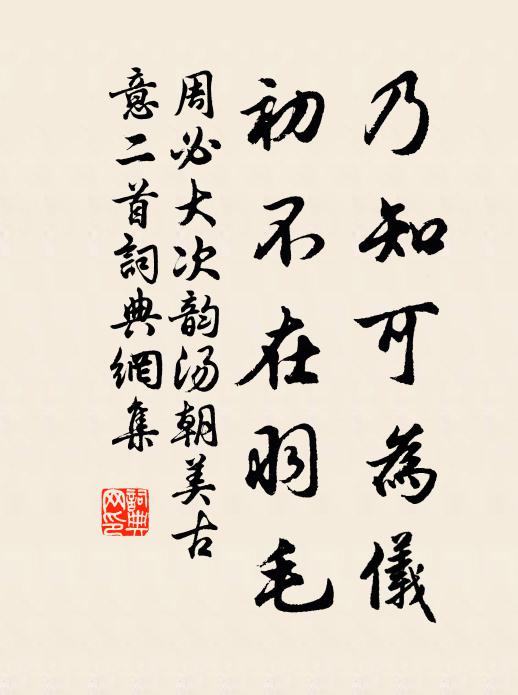 乃知可為儀
初不在羽毛
周必大次韵湯朝美古
意二首詞典網集
詞典
网印